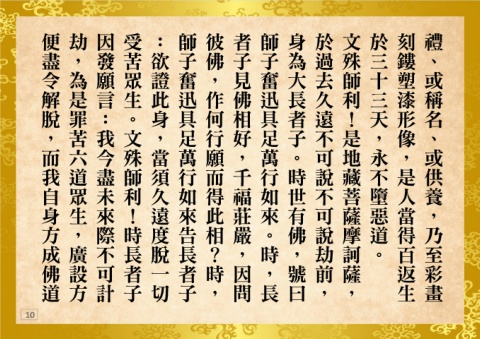 禮、或稱名、或供養，乃至彩畫
刻鏤塑漆形像，是人當得百返生
於三十三天，永不墮惡道。
文殊師利！是地藏菩薩摩訶薩，
於過去久遠不可說不可說劫前，
身為大長者子。時世有佛，號曰
師子奮迅具足萬行如來。時，長
者子見佛相好，千福莊嚴，因問
彼佛，作何行願而得此相？時，
師子奮迅具足萬行如來告長者子
：欲證此身，當須久遠度脫一切
受苦眾生。文殊師利！時長者子
因發願言：我今盡未來際不可計
劫，為是罪苦六道眾生，廣設方
便盡令解脫，而我自身方成佛道
10